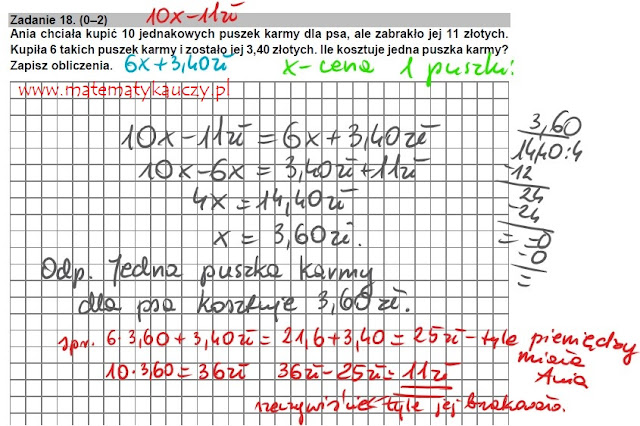 Zadanie 18. (0–2) 10x-11zł
Ania chciała kupić 10 jednakowych puszek karmy dla psa, ale zabrakło jej 11 złotych.
Kupiła 6 takich puszek karmy i zostało jej 3,40 złotych. Ile kosztuje jedna puszka karmy?
Zapisz obliczenia. 6x+3,40zł x-cena 1 puszki!
www.matematykauczy.pl
10x-11zł = 6x+3,40zł
10x-6x = 3,40zł+11zł
4x = 14,40zł
x = 3,60zł.
Odp. Jedna puszka karmy
dla psa kosztuje 3,60zł.
3,60
14,40:4
-12
24
-24
= =0
-0
=
spr. 6·3,60+3,40zł = 21,6+3,40 = 25zł - tyle pieniędzy
miała
Ania
10·3,60 = 36zł 36zł-25zł = 11zł
rzeczywiście tyle jej brakowało.